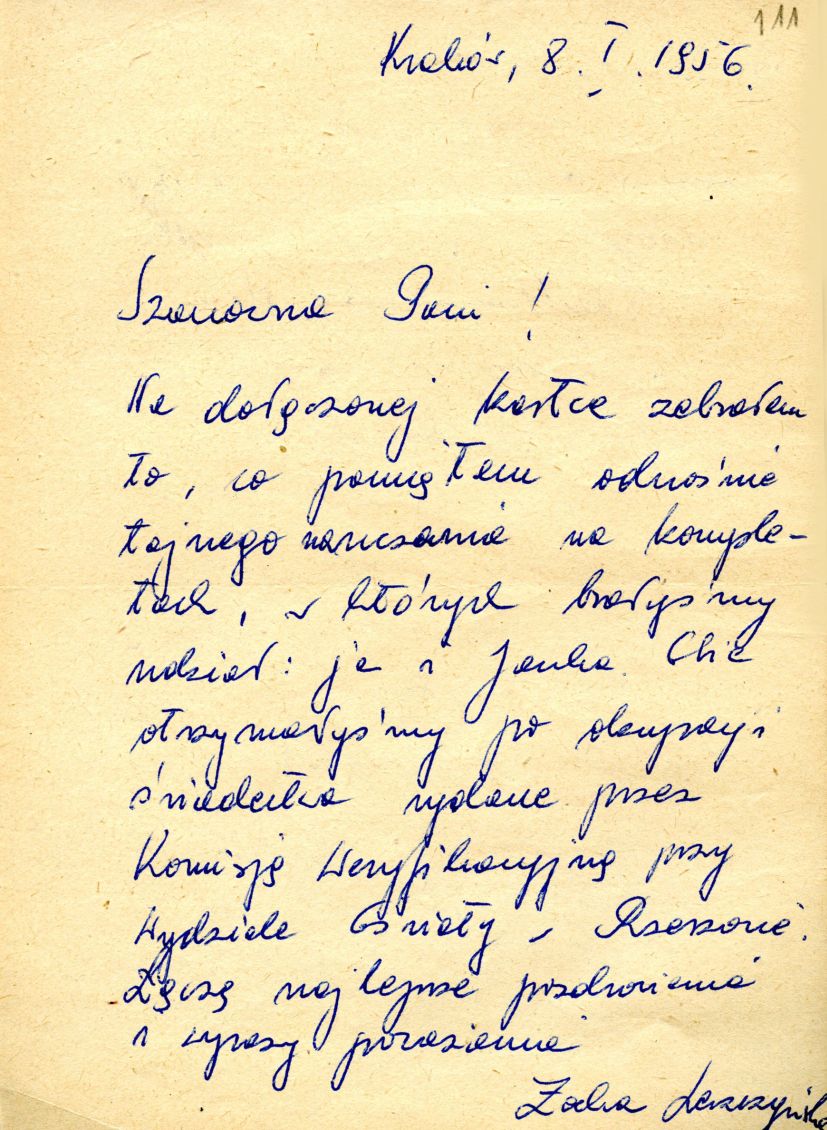 111
Kraków, 8. I. 1956.
Szanowna Pani!
Na dołączonej kartce zebrałam
to, co pamiętam odnośnie
tajnego nauczania na komple-
tach, w których brałyśmy
udział: ja i Janka. Obie
otrzymałyśmy po okupacji
świadectwa wydane przez
Komisję Weryfikacyjną przy
Wydziale Oświaty w Rzeszowie.
Łączę najlepsze pozdrowienia
i wyrazy poważania
Leszczyńska